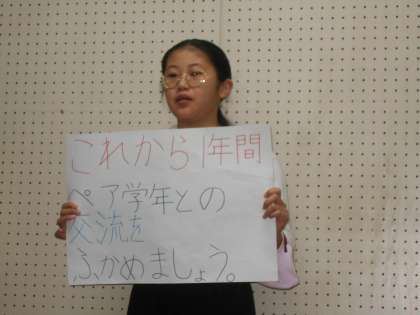 これから1年間
ペア学年との
交流を
ふかめましょう。